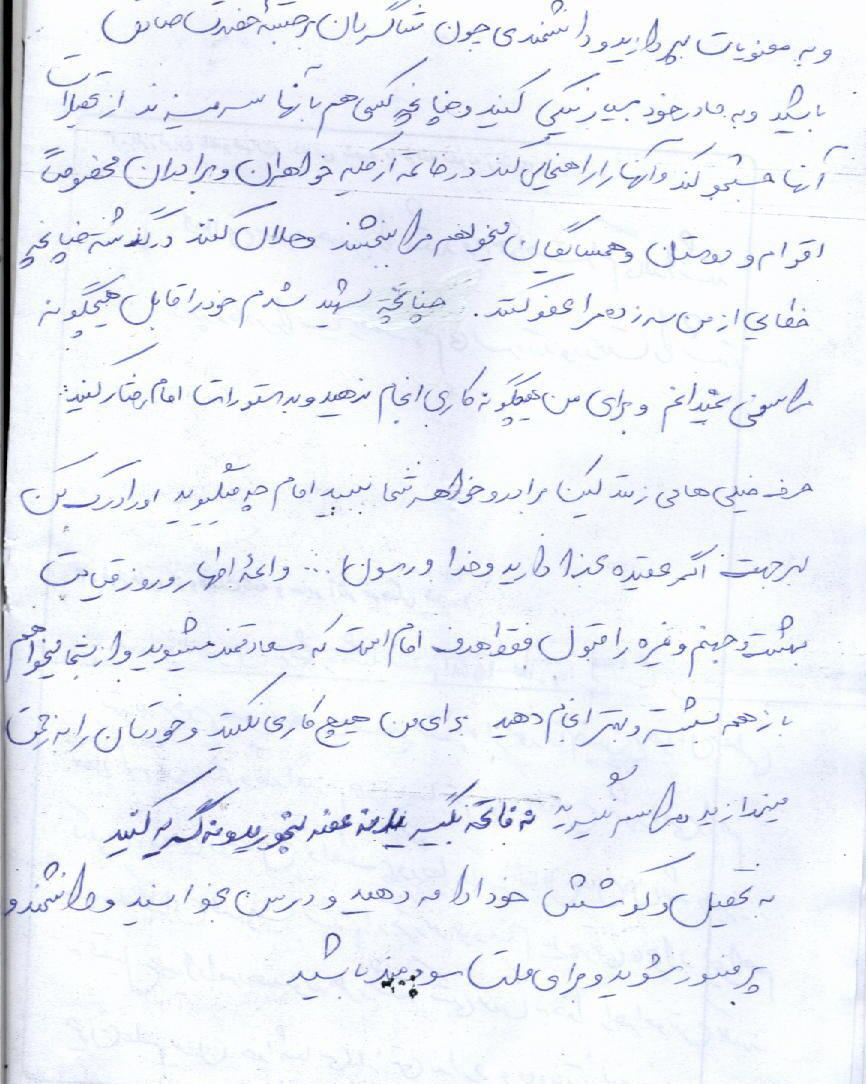 و به معنویات بپردازید و دانشمندی چون شاگردان برجسته حضرت صادق
باشید و به مادر خود بسیار نیکی کنید و چنانچه کسی هم با آنها سر میزند از تحصیلات
آنها جستجو کند و آنها را راهنمایی کند در خاتمه از کلیه خواهران و برادران مخصوصاً
اقوام و دوستان و همسایگان میخواهم مرا ببخشند و حلال کنند در گذشته چنانچه
خطایی از من سر زده مرا عفو کنند. چنانچه شهید شدم خود را قابل هیچگونه
مراسمی نمیدانم و برای من هیچگونه کاری انجام ندهید و به دستورات امام رفتار کنید:
حرف خیلی ها می زنند لیکن برادر و خواهر شما ببینید امام چه میگوید او را درک کن
بهر جهت اگر عقیده بخدا دارید و خدا و رسول ... و ائمه اطهار و روز قیامت
بهشت و جهنم و غیره را قبول فقط هدف امام است که سعادتمند میشوید و از شما میخواهم
باز هم بیشتر انجام دهید برای من هیچ کاری نکنید و خودتان را به زحمت
میندازید مراسم نگیرید نه فاتحه بگیرید نه غصه بخورید و نه گریه کنید
به تحصیل و کوشش خود ادامه دهید و درس بخوانید و دانشمند و
پرمنور شوید و برای ملت سودمند باشید